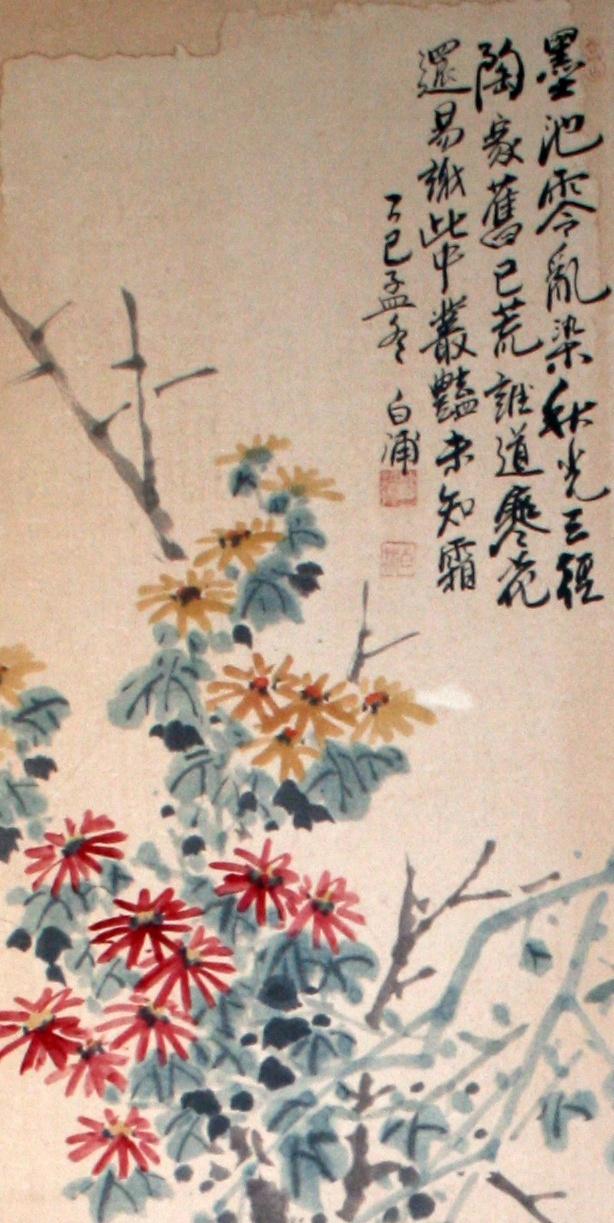 墨池零亂染秋光三徑
陶家舊已荒誰道寒花
還易謝此中叢豔未知霜
丁巳孟冬 白浦